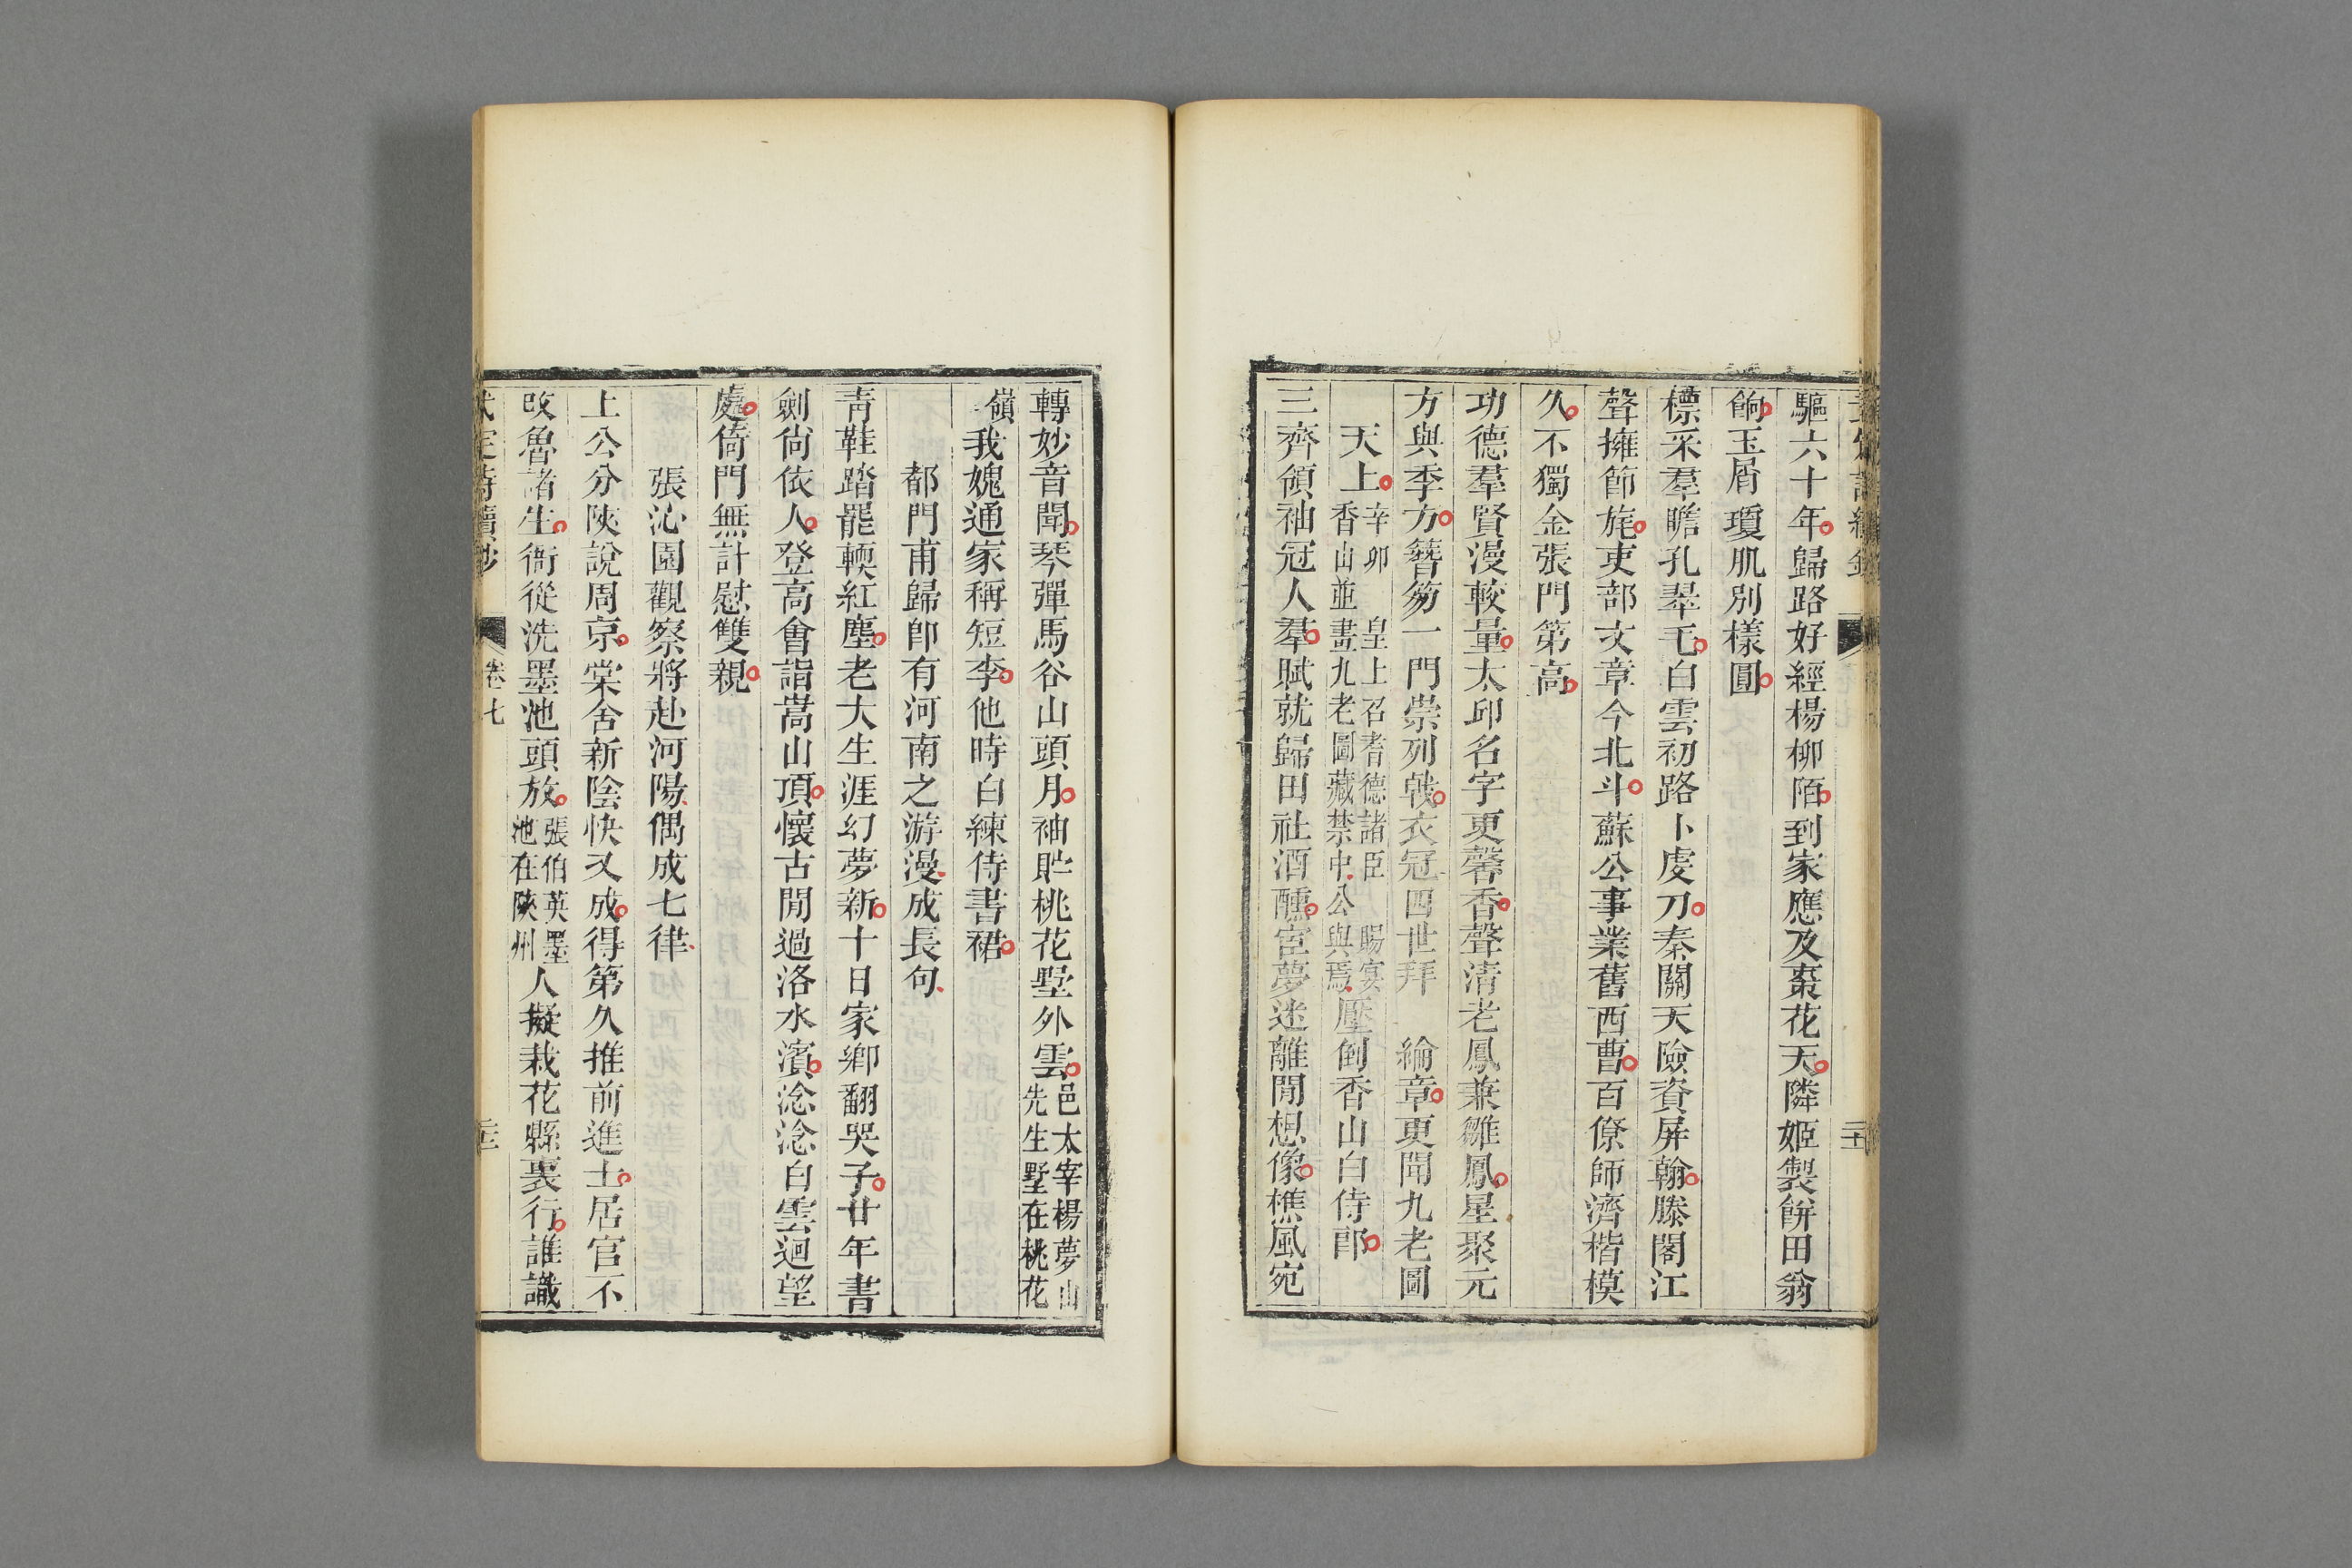 驅六十年歸路好經楊柳陌到家應及棗花天隣姬製餅田翁
餉玉屑瓊肌別樣圓
標采羣瞻孔翠毛白雲初路卜虔刀秦關天險資屏翰滕閣江
聲擁節旄吏部文章今北斗蘇公事業舊西曹百僚師濟楷模
久不獨金張門第高
功德羣賢漫較量太邱名字更馨香聲清老鳳兼雛鳳星聚元
方與季方簪笏一門崇列戟衣冠四世拜 綸章更聞九老圖
天上辛卯 皇上召耆德諸臣 賜宴香山並畫九老圖藏禁中公與焉壓倒香山白侍郎
三齊領袖冠人羣賦就歸田社酒醺宦夢迷離閒想像樵風宛
二十二
轉妙音聞琴彈馬谷山頭月袖貯桃花墅外雲邑太宰楊夢山先生墅在桃花
嶺我媿通家稱短李他時白練侍書裙
都門甫歸卽有河南之游漫成長句
青鞋踏罷輭紅塵老大生涯幻夢新十日家鄉翻哭子廿年書
劍尙依人登高會詣嵩山頂懷古閒過洛水濱淰淰白雲迴望
處倚門無計慰雙親
張沁園觀察將赴河陽偶成七律
上公分陝說周京棠舍新陰快又成得第久推前進士居官不
改魯諸生衙從洗墨池頭放張伯英墨池在陝州人擬栽花縣裏行誰識
武定詩續鈔 卷七